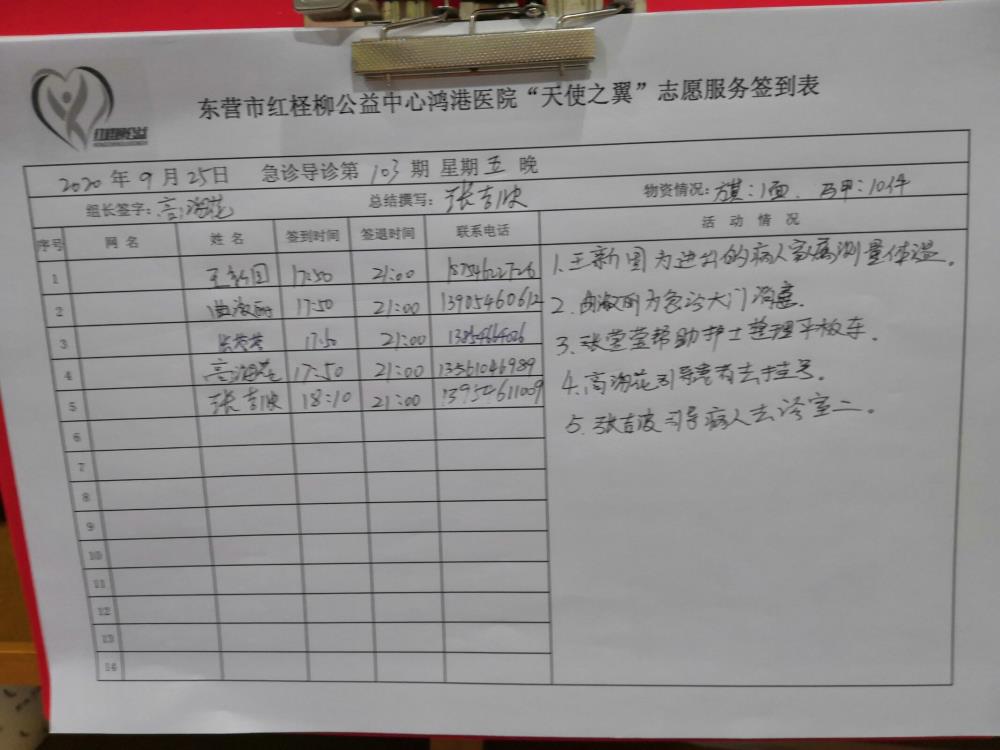 红柽柳公益
东营市红柽柳公益中心鸿港医院“天使之翼”志愿服务签到表
2020年9月25日 急诊导诊第103期 星期五 晚
组长签字: 高淑花 总结撰写: 张吉波 物资情况: 旗:1面. 马甲:10件
序号 网名 姓名 签到时间 签退时间 联系电话 活动情况
1 王新国 17:50 21:00 18754622726
2 曲淑丽 17:50 21:00 13905460612
3 张堂堂 17:50 21:00
4 高淑花 17:50 21:00 13561046989
5 张吉波 18:10 21:00 13954611009
6
7
8
9
10
11
12
13
14
1.王新国为进出的病人家属测量体温。
2.曲淑丽为急诊大门消毒.
3.张堂堂帮助护士整理平板车.
4.高淑花引导患者去挂号.
5.张吉波引导病人去诊室二。